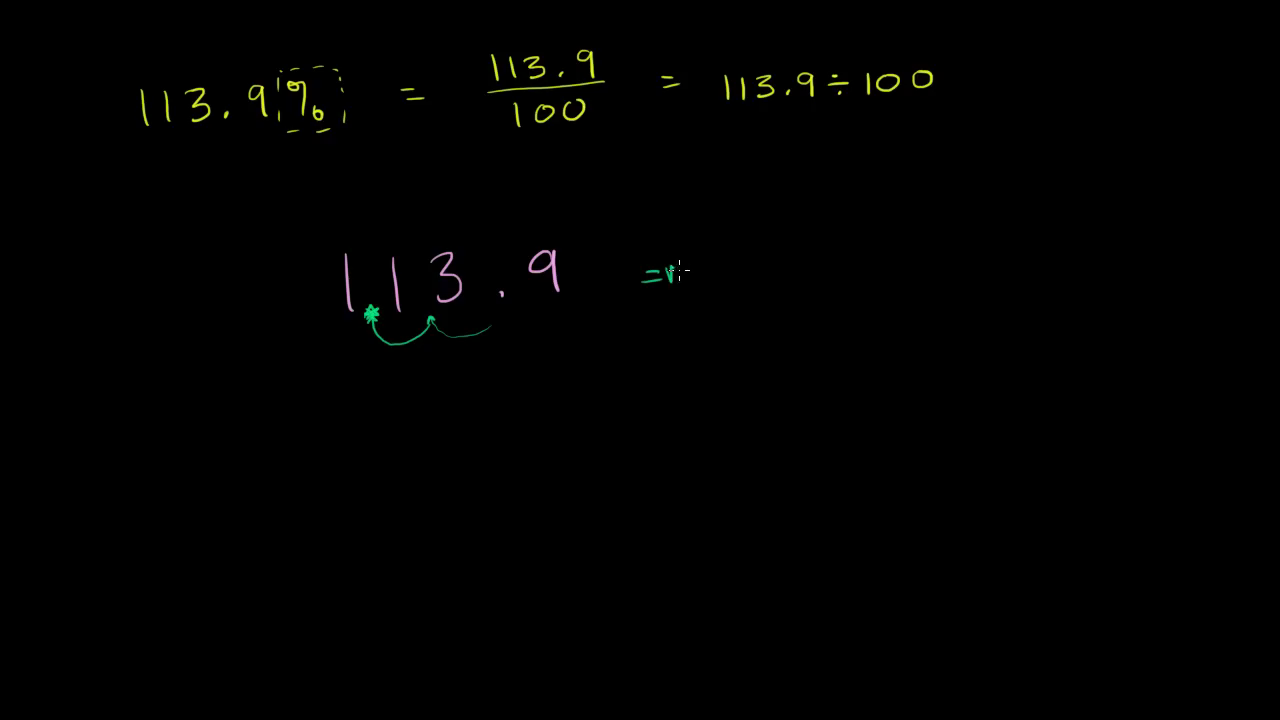 113.9% = 113.9/100 = 113.9÷100
113.9 =